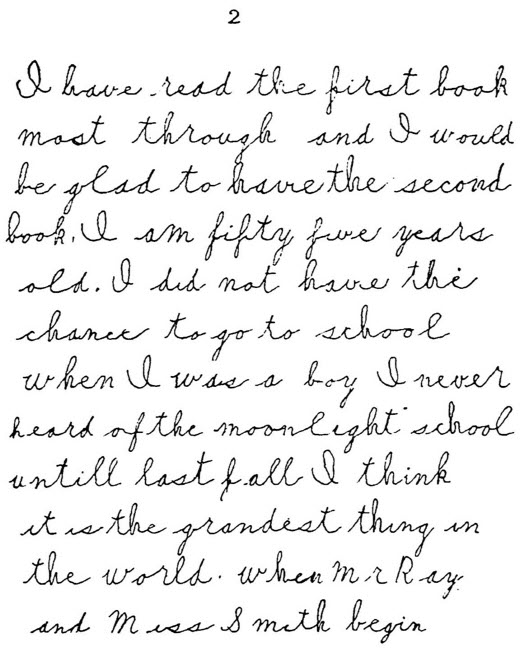 2
I have read the first book
most through and I would
be glad to have the second
book. I am fifty five years
old. I did not have the
chance to go to school
when I was a boy I never
heard of the moonlight school
untill last fall I think
it is the grandest thing in
the world. when Mr Ray
and Miss Smith begin